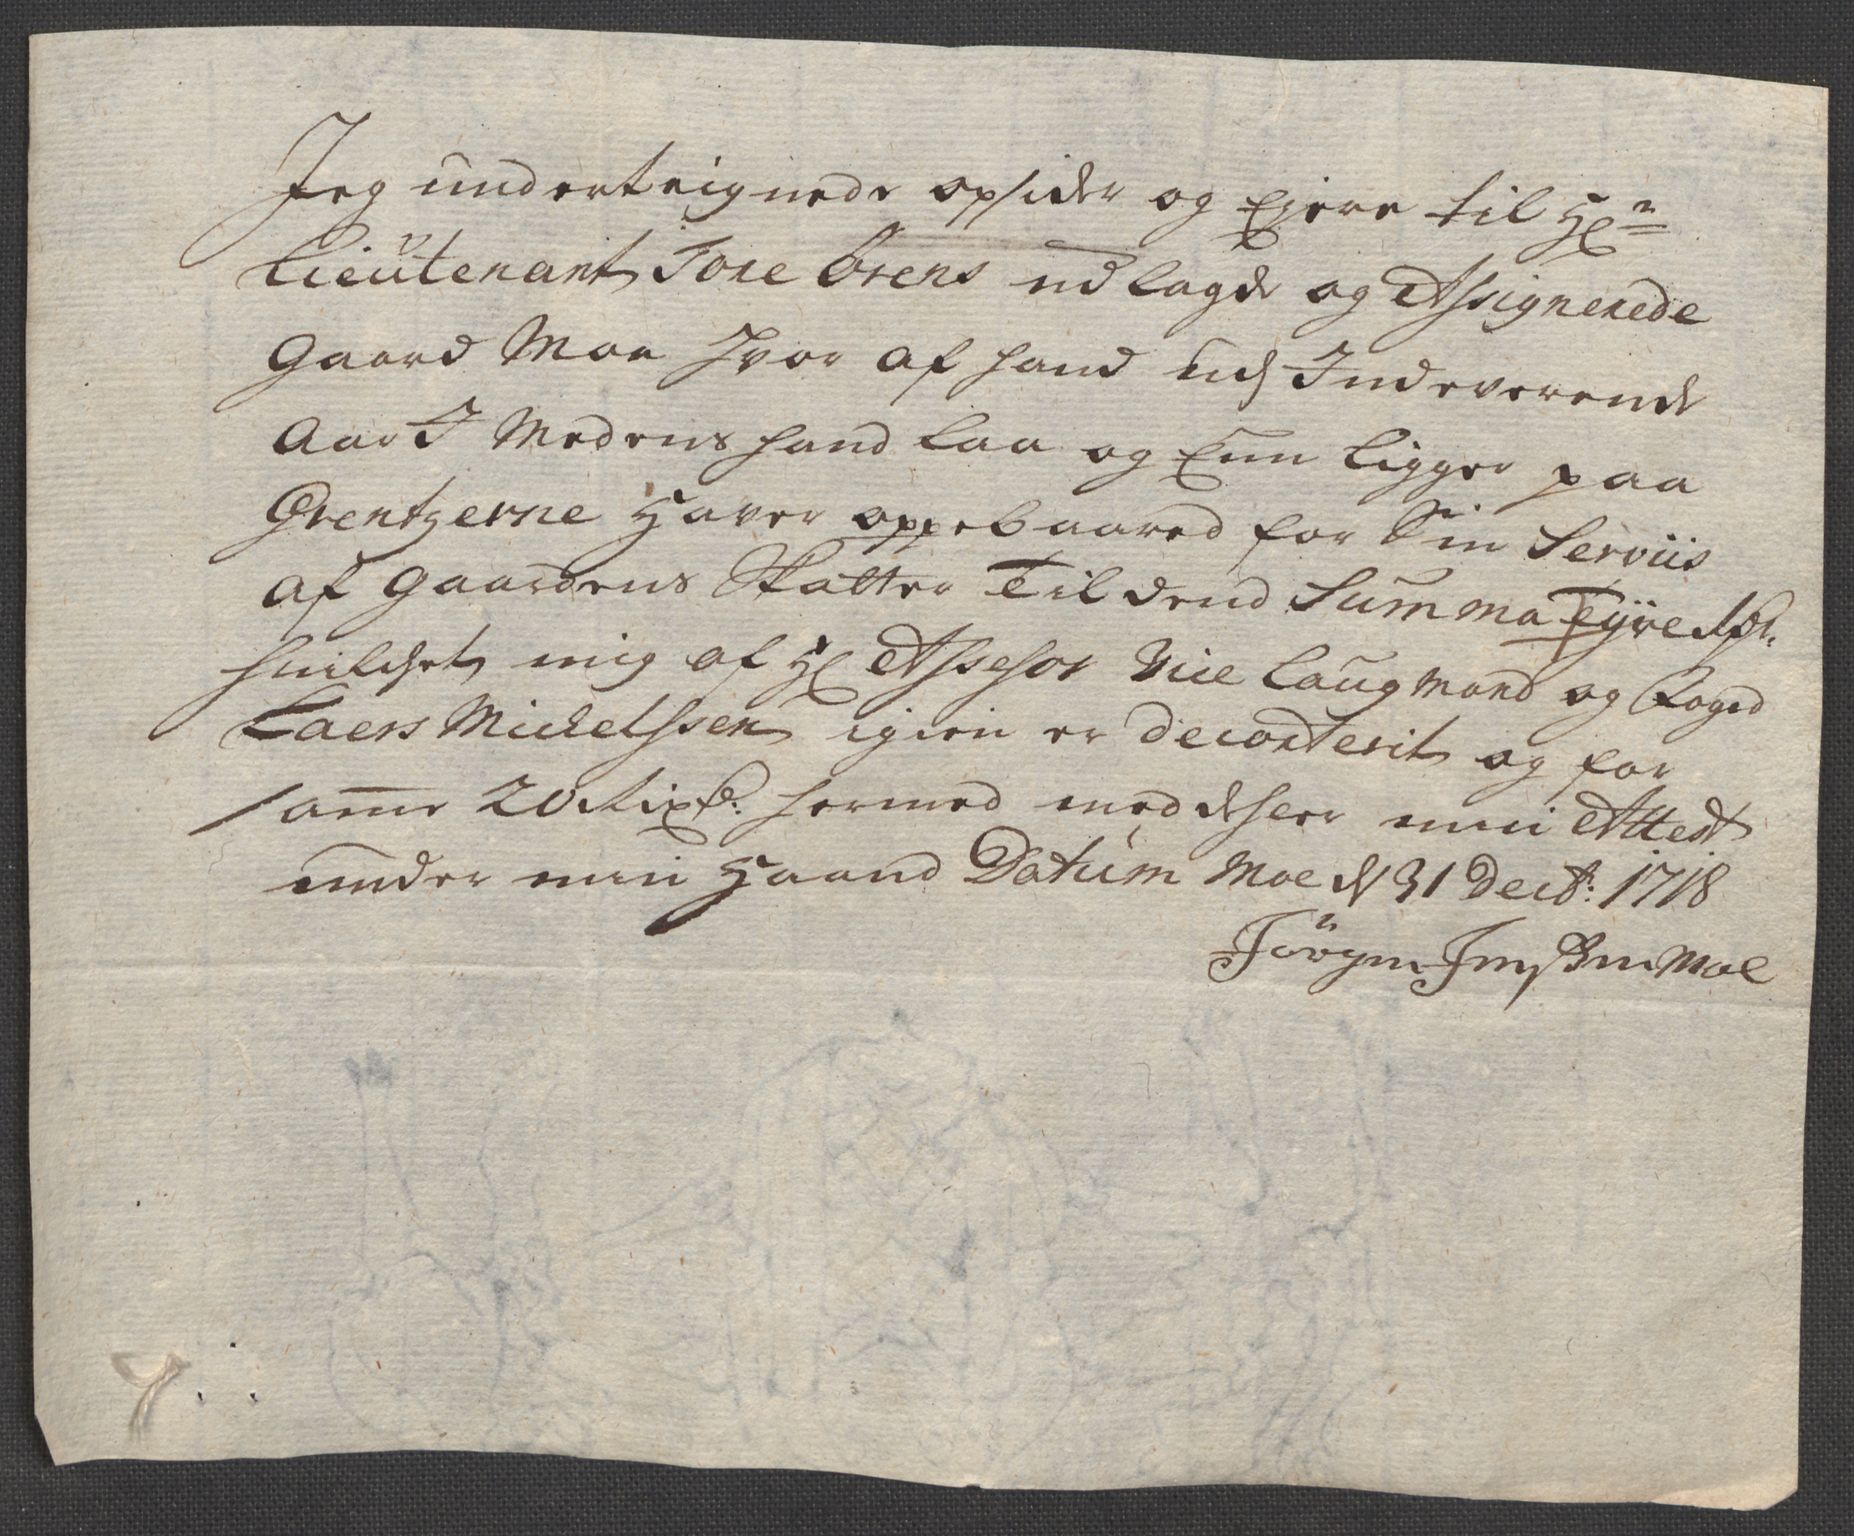 Jeg underteignede opsider og Ejere til Hr:
Lieutenant Tore Orens udlagde og Assignerede
Gaard Moe Hvor af hand udj Indeverende
Aar I Medens hand laa og Enn ligger paa
Grentzerne Haver oppebaared for Sin Serviis
af Gaardens Skatter Til dend Summa Tyve Rdr.
huilchet mig af Hr Assessor Vice Laugmand og Foged
Laers Michelssen igien er decorterit og for
samme 20 Rixdr: hermed meddeler min Attest
under min Haand Datum Moe d 31 Decbr: 1718
Jörgen Jenssen Moe